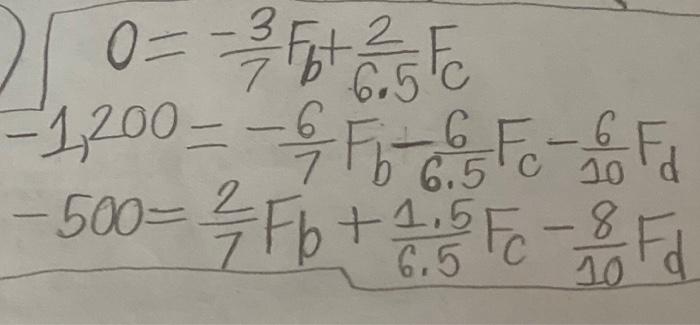 0 = -3/7 Fb + 2/6.5 Fc
-1,200 = -6/7 Fb - 6/6.5 Fc - 6/10 Fd
-500 = 2/7 Fb + 1.5/6.5 Fc - 8/10 Fd